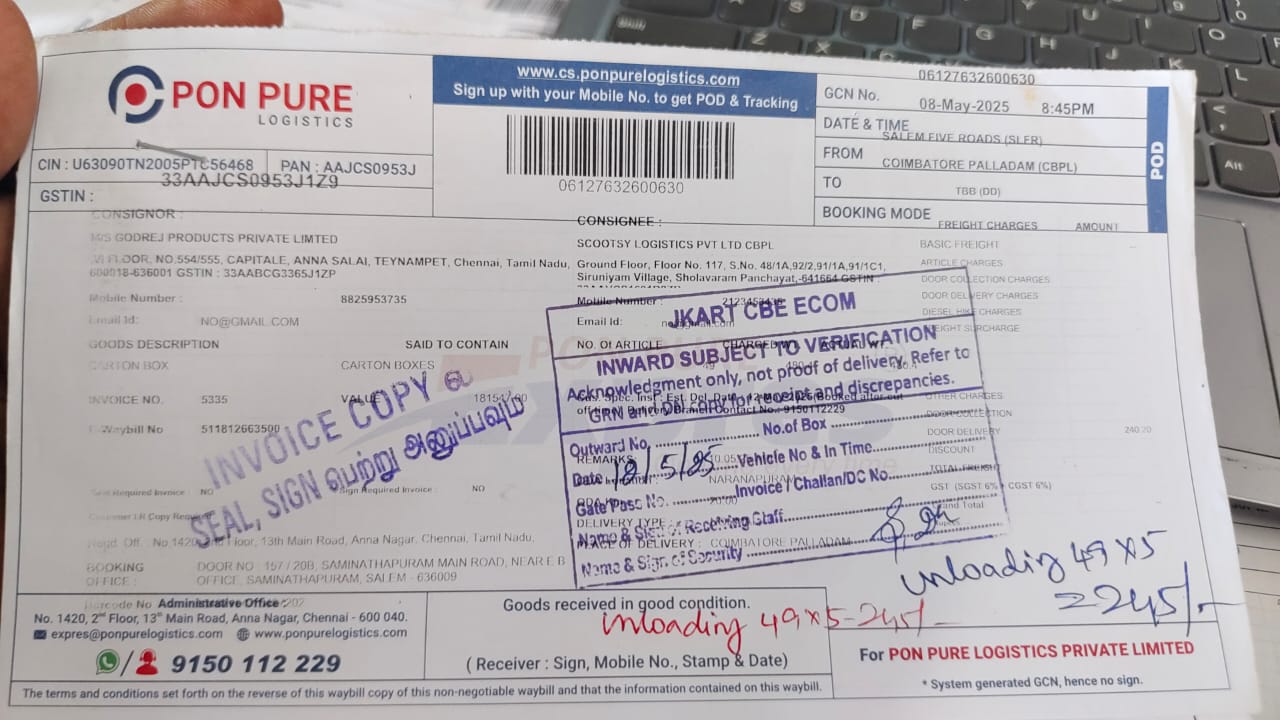 PON PURE
LOGISTICS
CIN : U63090TN2005PTC56468
PAN : AAJCS0953J
33AAJCS0953J1Z9
GSTIN :
www.cs.ponpurelogistics.com
Sign up with your Mobile No. to get POD & Tracking
06127632600630
06127632600630
GCN No.
08-May-2025 8:45PM
DATE & TIME
SALEM FIVE ROADS (SLFR)
FROM
COIMBATORE PALLADAM (CBPL)
TO
TBB (DD)
BOOKING MODE
POD
CONSIGNOR :
M/S GODREJ PRODUCTS PRIVATE LIMTED
FLOOR, NO.554/555, CAPITALE, ANNA SALAI, TEYNAMPET, Chennai, Tamil Nadu,
600018-636001 GSTIN : 33AABCG3365J1ZP
Mobile Number : 8825953735
Email Id: NO@GMAIL.COM
GOODS DESCRIPTION SAID TO CONTAIN
CARTON BOX CARTON BOXES
INVOICE NO. 5335 VALUE
E-Waybill No 511812663500
Required Invoice : NO Sign Required Invoice : NO
INVOICE COPY ல
SEAL, SIGN பெற்று அனுப்பவும்
CONSIGNEE :
SCOOTSY LOGISTICS PVT LTD CBPL
Ground Floor, Floor No. 117, S.No. 48/1A,92/2,91/1A,91/1C1,
Siruniyam Village, Sholavaram Panchayat,-641664 GSTIN :
Mobile Number :
Email Id:
NO. Of ARTICLE
FREIGHT CHARGES AMOUNT
BASIC FREIGHT
ARTICLE CHARGES
DOOR COLLECTION CHARGES
DOOR DELIVERY CHARGES
DIESEL HIKE CHARGES
FREIGHT SURCHARGE
OTHER CHARGES
DOOR COLLECTION
DOOR DELIVERY 240.20
DISCOUNT
TOTAL FREIGHT
GST (SGST 6% + CGST 6%)
Grand Total
JKART CBE ECOM
INWARD SUBJECT TO VERIFICATION
Acknowledgment only, not proof of delivery. Refer to
GRN and DN copy for receipt and discrepancies.
Outward No. No.of Box
Date 12/5/25 Vehicle No & In Time
Gate Pass No. Invoice / Challan/DC No.
Name & Sign of Receiving Staff
Name & Sign of Security
Contact No.: 9150112229
REMARKS:
NARANAPURAM
DELIVERY TYPE :
PLACE OF DELIVERY : COIMBATORE PALLADAM
Regd. Off. No.1420, 2nd Floor, 13th Main Road, Anna Nagar, Chennai, Tamil Nadu,
BOOKING DOOR NO : 157 / 20B, SAMINATHAPURAM MAIN ROAD, NEAR E B
OFFICE : OFFICE, SAMINATHAPURAM, SALEM - 636009
unloading 49 X 5
= 245/-
Barcode No
Administrative Office :
No. 1420, 2nd Floor, 13th Main Road, Anna Nagar, Chennai - 600 040.
expres@ponpurelogistics.com www.ponpurelogistics.com
9150 112 229
Goods received in good condition.
unloading 49 x 5 - 245/-
( Receiver : Sign, Mobile No., Stamp & Date)
For PON PURE LOGISTICS PRIVATE LIMITED
* System generated GCN, hence no sign.
The terms and conditions set forth on the reverse of this waybill copy of this non-negotiable waybill and that the information contained on this waybill.